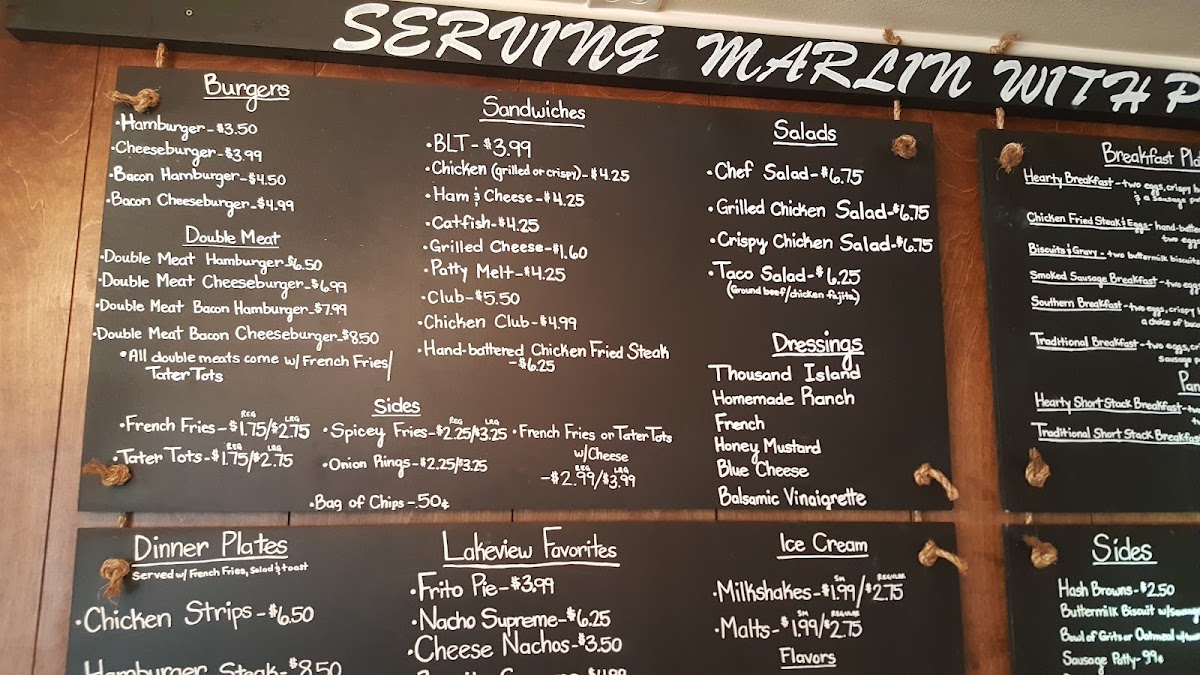 SERVING MARLIN WITH P
Burgers
•Hamburger-$3.50
•Cheeseburger-$3.99
•Bacon Hamburger-$4.50
•Bacon Cheeseburger-$4.99
Double Meat
•Double Meat Hamburger-$6.50
•Double Meat Cheeseburger-$6.99
•Double Meat Bacon Hamburger-$7.99
•Double Meat Bacon Cheeseburger-$8.50
*All double meats come w/ French Fries/
Tater Tots
Sandwiches
•BLT-$3.99
•Chicken (grilled or crispy)-$4.25
•Ham & Cheese-$4.25
•Catfish-$4.25
•Grilled Cheese-$1.60
•Patty Melt-$4.25
•Club-$5.50
•Chicken Club-$4.99
•Hand-battered Chicken Fried Steak
-$6.25
Sides
REG LRG
•French Fries-$1.75/$2.75
REG LRG
•Tater Tots-$1.75/$2.75
REG LRG
•Spicey Fries-$2.25/$3.25
•Onion Rings-$2.25/$3.25
•Bag of Chips-.50¢
•French Fries or Tater Tots
w/Cheese
REG LRG
-$2.99/$3.99
Salads
•Chef Salad-$6.75
•Grilled Chicken Salad-$6.75
•Crispy Chicken Salad-$6.75
•Taco Salad-$6.25
(Ground beef/chicken fajita)
Dressings
Thousand Island
Homemade Ranch
French
Honey Mustard
Blue Cheese
Balsamic Vinaigrette
Breakfast Pla
Hearty Breakfast-two eggs, crispy h
& a sausage pa
Chicken Fried Steak & Eggs-hand-batte
two egg
Biscuits & Gravy-two buttermilk biscuits
Smoked Sausage Breakfast-two eggs
Southern Breakfast-two eggs, crispy h
a choice of ba
Traditional Breakfast-two eggs, cri
sausage p
Pan
Hearty Short Stack Breakfast-
Traditional Short Stack Breakfast
Dinner Plates
served w/ French Fries, Salad & toast
•Chicken Strips-$6.50
Hamburger Steak-$8.50
Lakeview Favorites
•Frito Pie-$3.99
•Nacho Supreme-$6.25
•Cheese Nachos-$3.50
$4.99
Ice Cream
SM REGULAR
•Milkshakes-$1.99/$2.75
SM REGULAR
•Malts-$1.99/$2.75
Flavors
Sides
Hash Browns-$2.50
Buttermilk Biscuit w/sausag
Bowl of Grits or Oatmeal w/toa
Sausage Patty-99¢